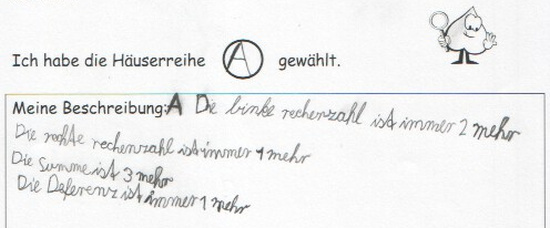 Ich habe die Häuserreihe A gewählt.
Meine Beschreibung: A Die linke rechenzahl ist immer 2 mehr
Die rechte rechenzahl ist immer 1 mehr
Die Summe ist 3 mehr
Die Deferenz ist immer 1 mehr